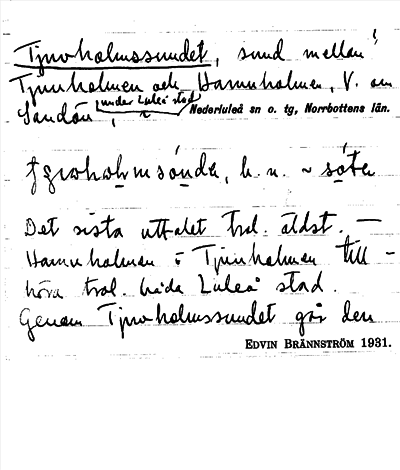 Tjuvholmssundet, sund mellan
Tjuvholmen och Hamnholmen, V. om
Sandön, under Luleå stad
Nederluleå sn o. tg, Norrbottens län.
b. n. ~
Det sista uttalet trol. äldst. —
Hamnholmen o Tjuvholmen till-
höra trol. båda Luleå stad.
Genom Tjuvholmssundet går den
EDVIN BRÄNNSTRÖM 1931.